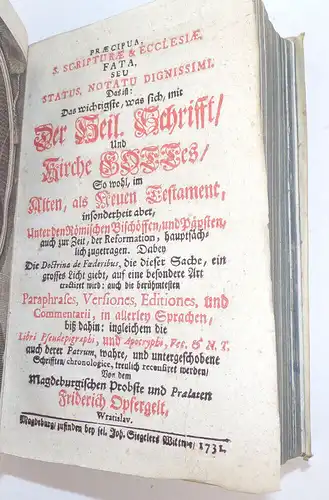 PRÆCIPUA,
S. SCRIPTURÆ & ECCLESIÆ,
FATA,
SEU
STATUS, NOTATU DIGNISSIMI.
Das ist:
Das wichtigste, was sich, mit
Der Heil. Schrifft/
Und
Kirche GOTTes/
So wohl, im
Alten, als Neuen Testament,
insonderheit aber,
Unter den Römischen Bischöffen, und Päpsten,
auch zur Zeit, der Reformation, hauptsäch-
lich zugetragen. Dabey
Die Doctrina de Fœderibus, die dieser Sache, ein
grosses Licht giebt, auf eine besondere Art
tractiret wird: auch die berühmtesten
Paraphrases, Versiones, Editiones, und
Commentarii, in allerley Sprachen,
biß dahin: ingleichem die
Libri Pseudepigraphi, und Apocryphi, Vet. & N. T.
auch derer Patrum, wahre, und untergeschobene
Schrifften, chronologice, treulich recensiret werden/
Von dem
Magdeburgischen Probste und Prælaten
Friderich Opfergelt,
Wratislav.
Magdeburg, zufinden bey sel. Joh. Siegelers Wittwe, 1731.